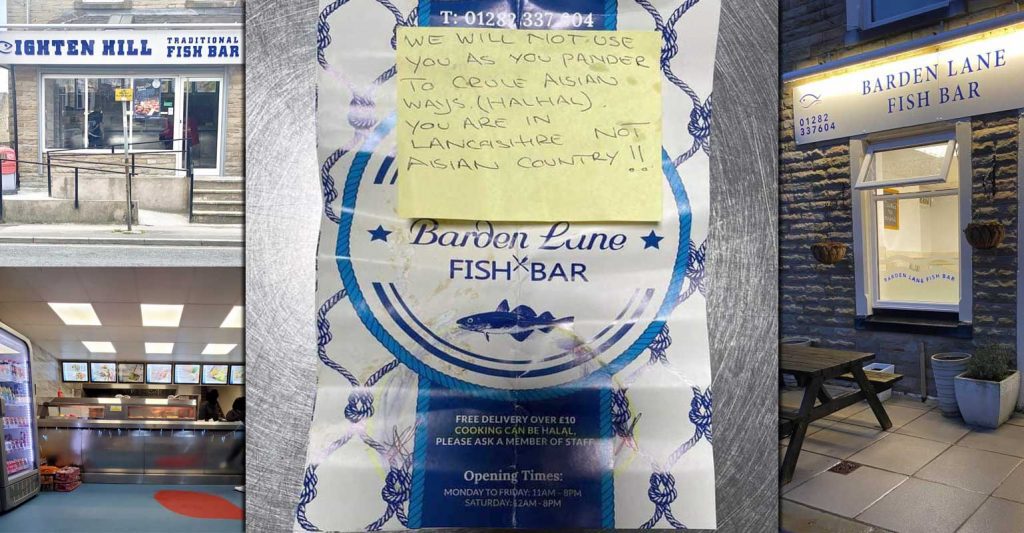 IGHTEN HILL
TRADITIONAL
FISH BAR
T: 01282 337 604
WE WILL NOT USE
YOU AS YOU PANDER
TO CRULE AISIAN
WAYS (HALHAL).
YOU ARE IN
LANCASHIRE NOT
AISIAN COUNTRY !!
Barden Lane
FISH BAR
FREE DELIVERY OVER £10
COOKING CAN BE HALAL,
PLEASE ASK A MEMBER OF STAFF
Opening Times:
MONDAY TO FRIDAY: 11AM - 8PM
SATURDAY: 12AM - 8PM
BARDEN LANE
FISH BAR
01282
337604
BARDEN LANE FISH BAR